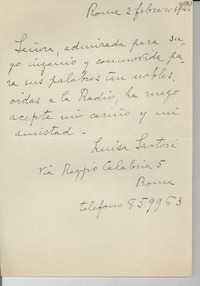 Roma 2 febrero
Señora, admirada para su
yo ingenio y conmovida pa
ra sus palabras tan nobles,
oidas a la Radio, ha ruego
acepte mi cariño y mi
amistad -
Luisa Sartori
via Reggio Calabria 5
Roma
telefono 859963